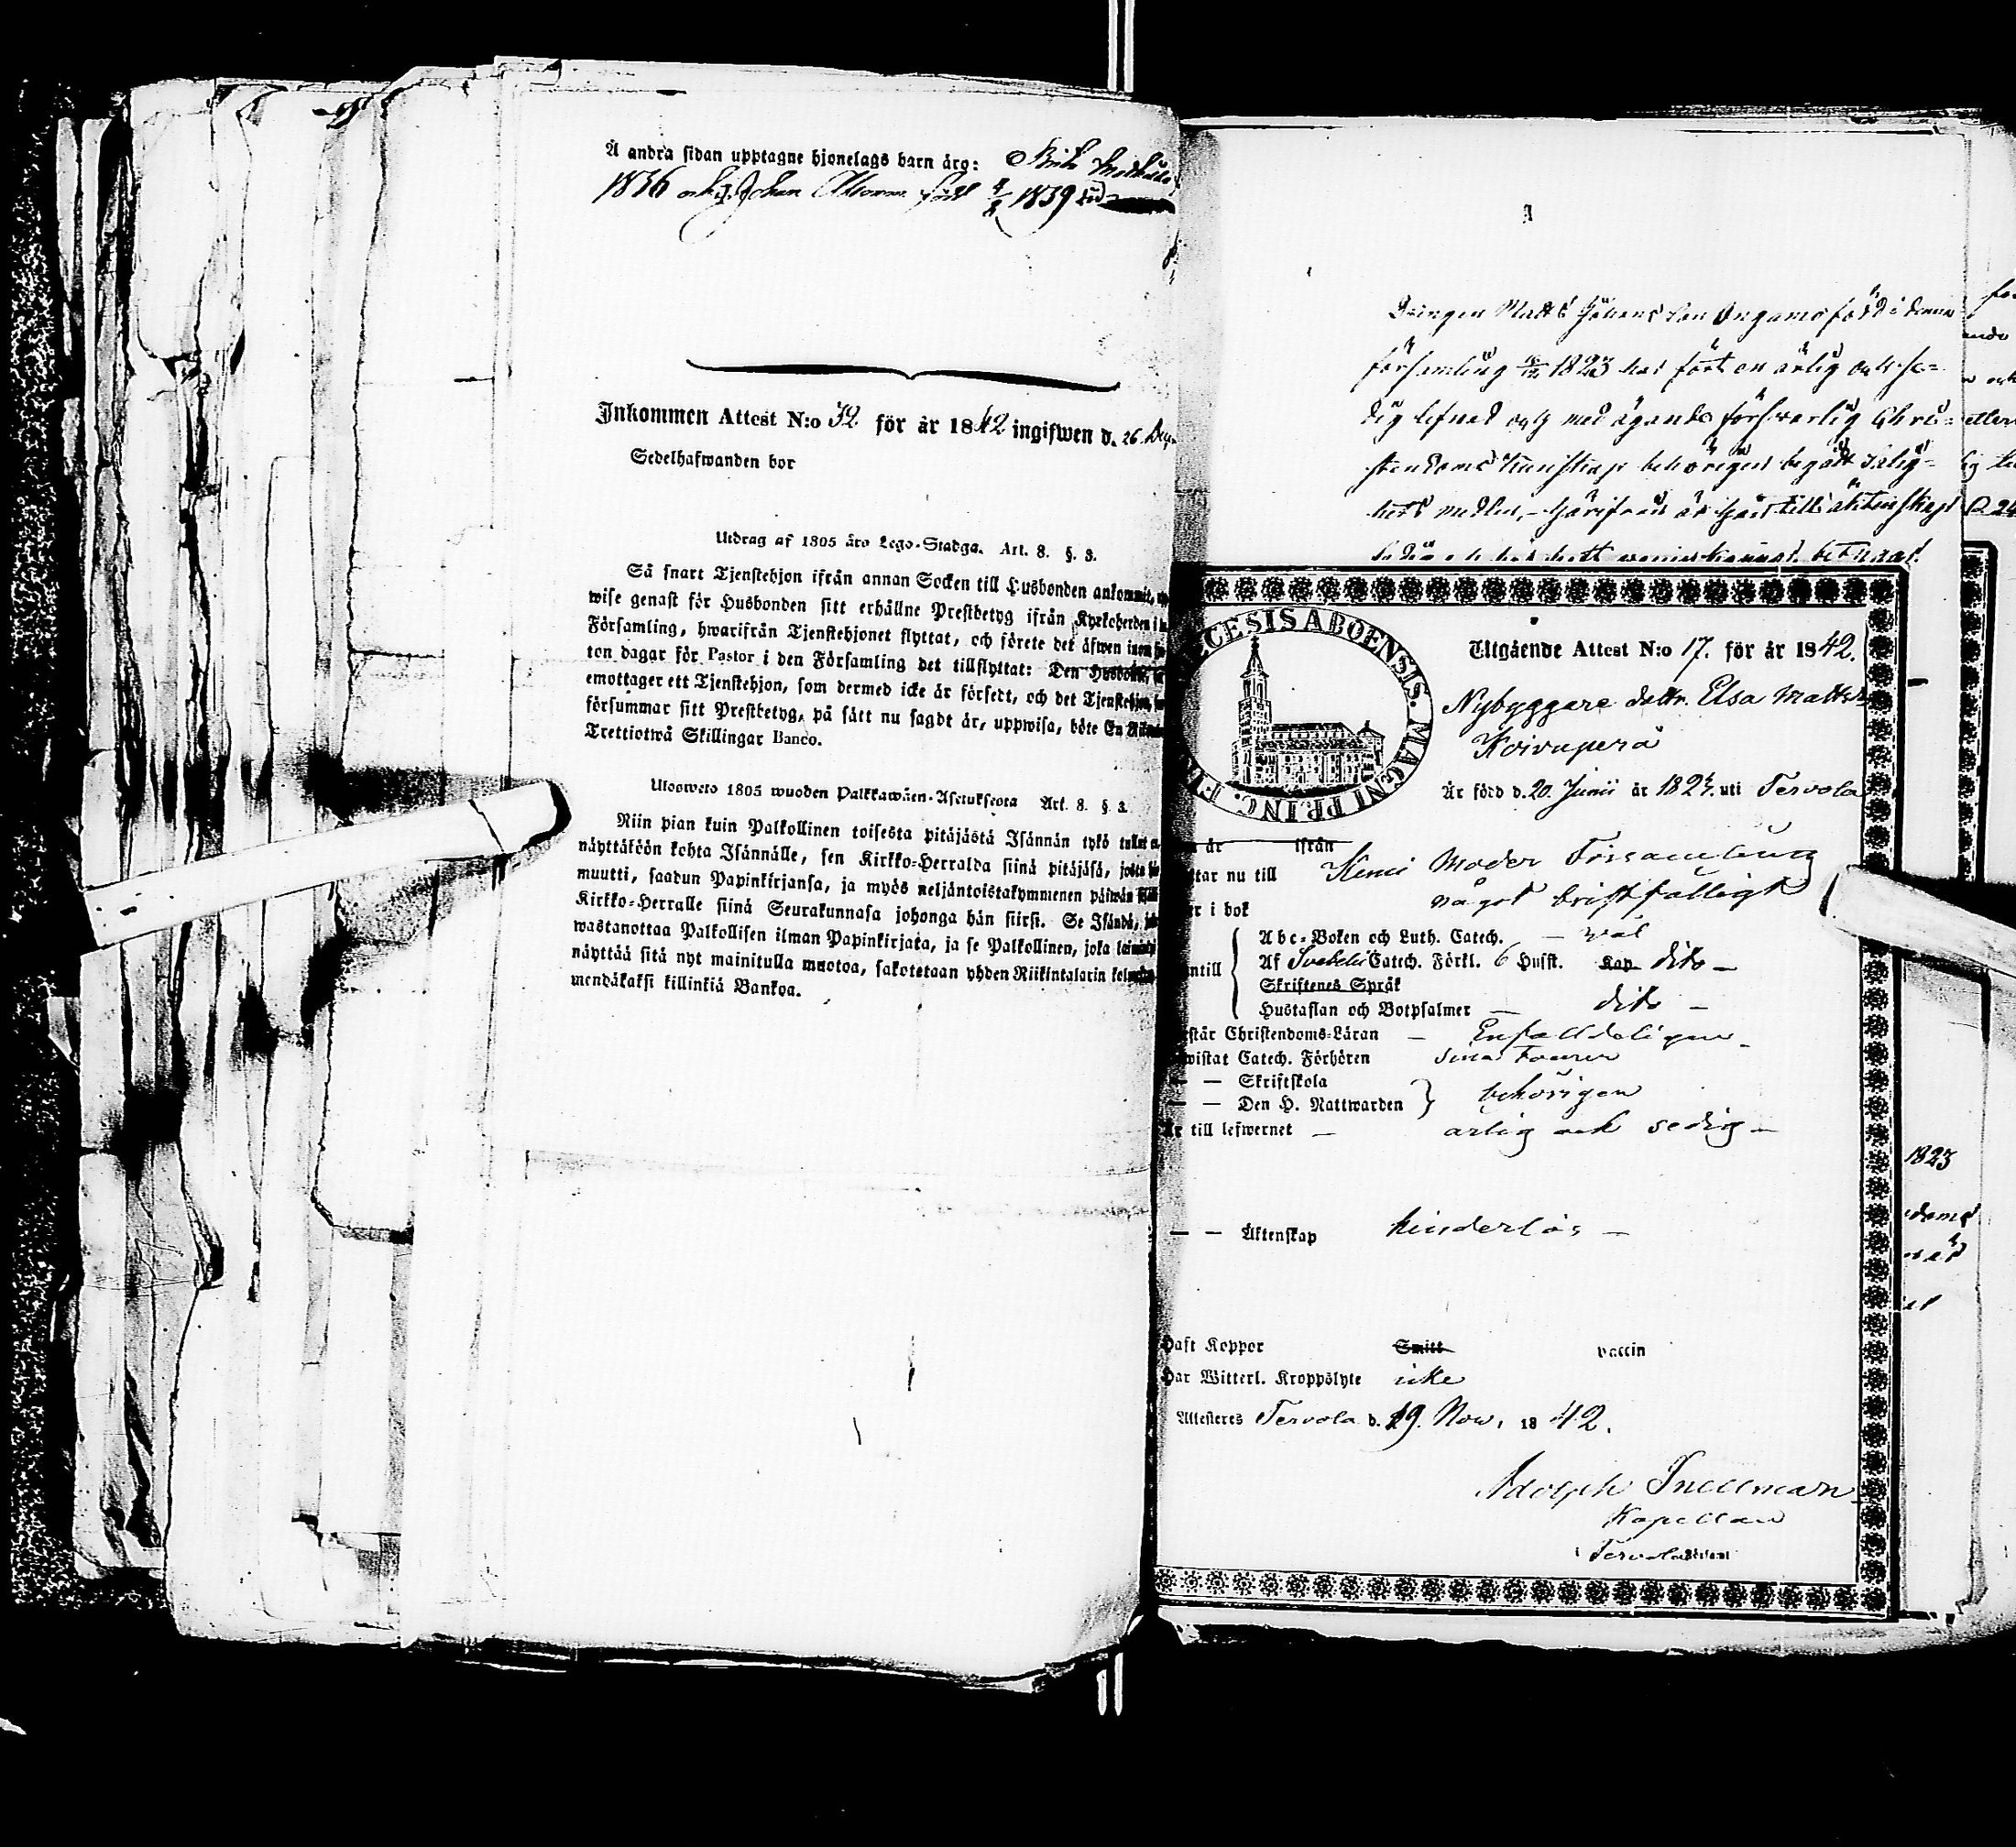 A andra sidan upptagne hjonelags barn äro: Brita
1836 och Johan född 4/8 1839
Inkommen Attest N:o 32 för år 1842 ingifwen d. 26
Sedelhafwanden bor
Utdrag af 1805 års Lego-Stadga. Art. 8. §. 3.
Så snart Tjenstehjon ifrån annan Socken till Husbonden ankommit,
wise genast för Husbonden sitt erhållne Prestbetyg ifrån Kyrkoherden i
Församling, hwarifrån Tjenstehjonet flyttat, och förete det äfwen inom
ton dagar för Pastor i den Församling det tillflyttat: Den Husbonde,
emottager ett Tjenstehjon, som dermed icke är försedt, och det Tjenstehjon,
försummar sitt Prestbetyg, på sätt nu sagdt är, uppwisa, böte En
Trettiotwå Skillingar Banco.
Ulosweto 1805 wuoden Palkkawäen-Asetuksesta Art. 8. §. 3.
Niin pian kuin Palkollinen toisesta pitäjästä Isännän tykö tullut
näyttäköön kohta Isännälle, sen Kirkko-Herralda siinä pitäjäsä, josta
muutti, saadun Papinkirjansa, ja myös neljäntoistakymmenen päiwän
Kirkko-Herralle siinä Seurakunnasa johonga hän siirsi. Se Isändä,
wastanottaa Palkollisen ilman Papinkirjata, ja se Palkollinen, joka
näyttää sitä nyt mainitulla muotoa, sakotetaan yhden Riikintalarin
mendäkaksi killinkiä Bankoa.
Drängen Matts Johans son Ongamo född i denna
församling 1823 har fört en ärlig och se-
dig lefnad och med ägande försvarlig Chri-
stendoms kunskap behörigen begått Salig-
hets medlen, härifrån är han till äktenskap
CESIS ABOENSIS. MAGNI PRINC. F
Utgående Attest N:o 17. för år 1842.
Nybyggare dottr. Elsa Matts
Koivuperä
Är född d. 20 Junii år 1824. uti Tervola
är ifrån
tar nu till Kemi Moder Församling
r i bok något bristfälligt
Abc-Boken och Luth. Catech. – wäl
ntill Af Svebelii Catech. Förkl. 6 Husst. Kap dito –
Skriftenes Språk
Hustaflan och Botpsalmer – dito –
rstår Christendoms-Läran – Enfalldeligen –
wistat Catech. Förhören sina
– – Skriftskola
– – Den H. Nattwarden behörigen
r till lefwernet – ärlig och sedig –
– – Äktenskap hinderlös –
Haft Koppor Smitt vaccin
Har Witterl. Kroppslyte icke
Attesteres Tervola d. 19. Nov. 1842.
Adolph Snellman
Kapellan
Tervola
1823